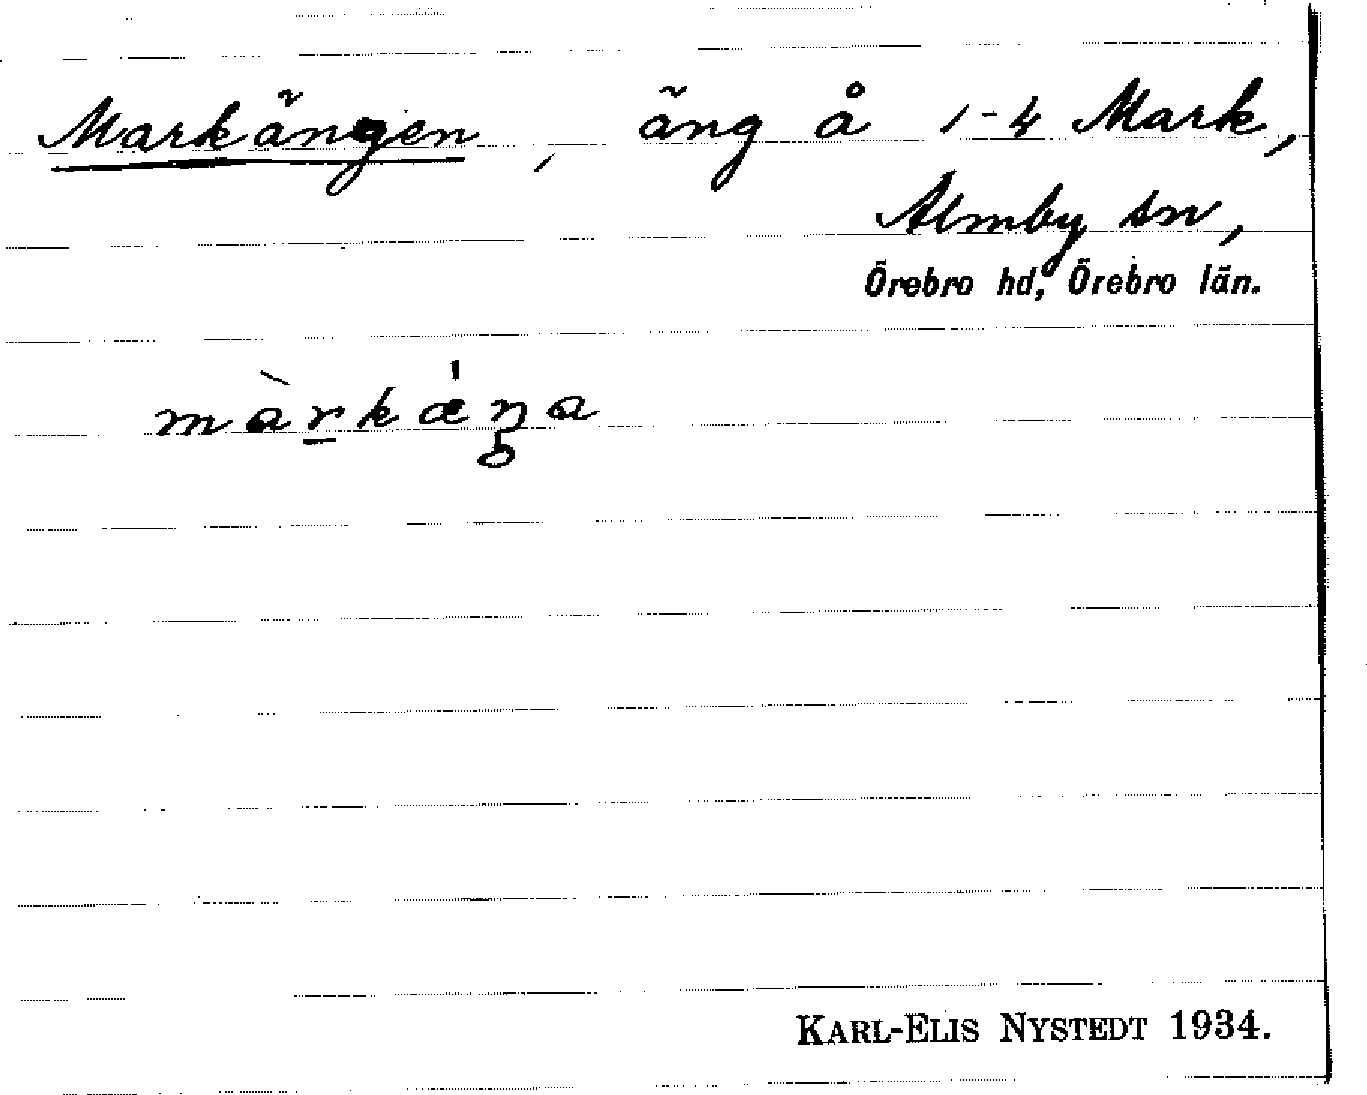 Markängen, äng å 1-4 Mark,
Almby sn,
Örebro hd, Örebro län.
màrkæ̍ŋa
KARL-ELIS NYSTEDT 1934.